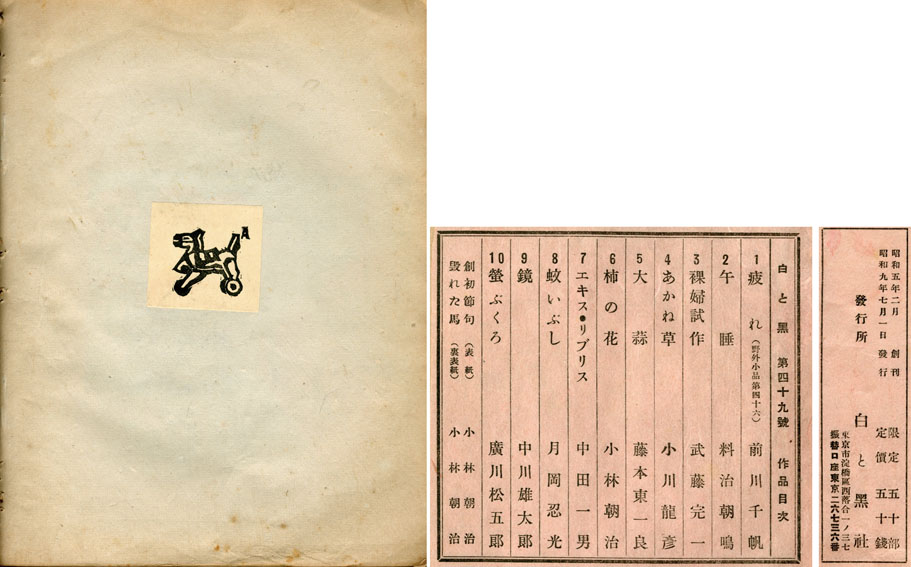 A
白と黑 第四十九號 作品目次
1 疲れ(野外小品第四十六) 前川千帆
2 午睡 料治朝鳴
3 裸婦試作 武藤完一
4 あかね草 小川龍彦
5 大蒜 藤本東一良
6 柿の花 小林朝治
7 エキス・リブリス 中田一男
8 蚊いぶし 月岡忍光
9 鏡 中川雄太郎
10 螢ぶくろ 廣川松五郎
創初節句(表紙) 小林朝治
毀れた馬(裏表紙) 小林朝治
昭和五年二月 創刊
昭和九年七月一日 發行
限定 五十部
定價 五十錢
發行所 白と黑社
東京市淀橋區西落合一ノ三七
振替口座東京二六七三六番